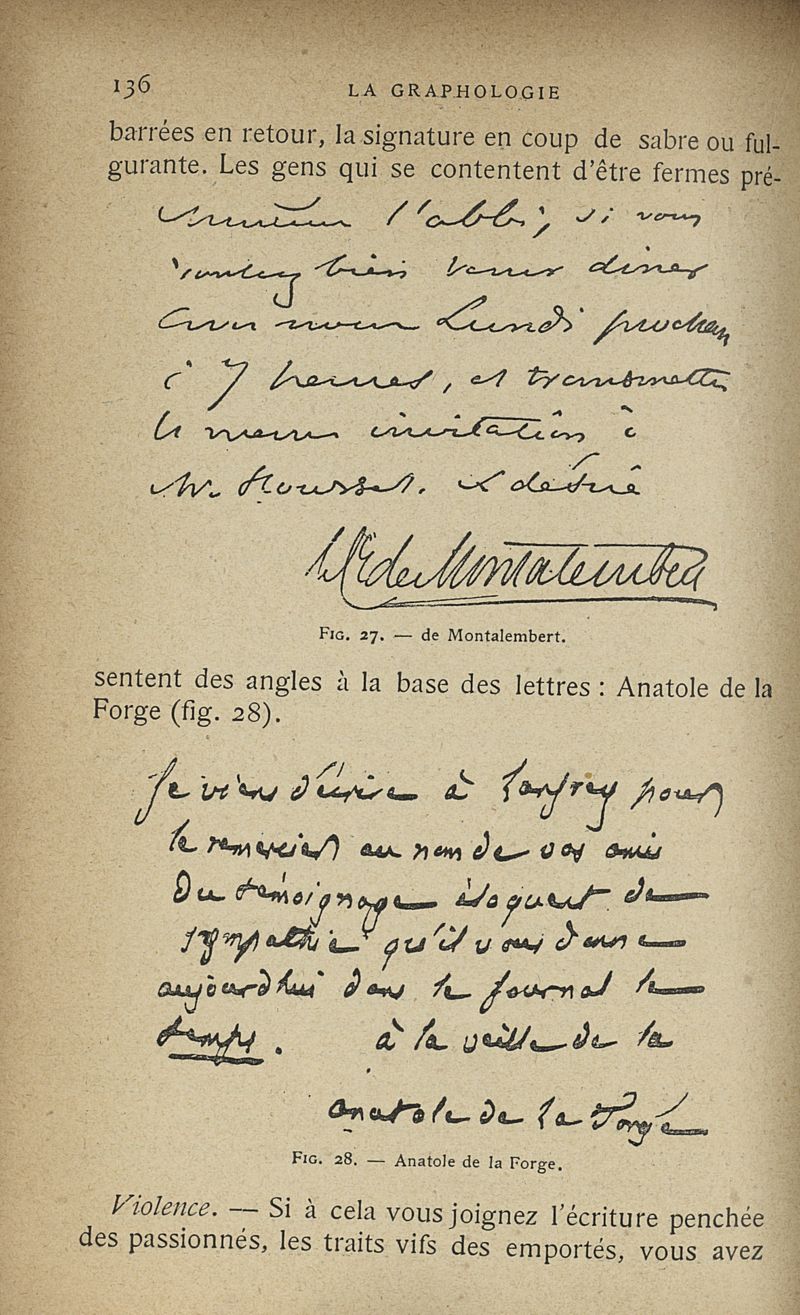 136 LA GRAPHOLOGIE
barrées en retour, la signature en coup de sabre ou ful-
gurante. Les gens qui se contentent d'être fermes pré-
Monsieur l'abbé, si vous
vouley bien venir diner
avec nous Lundi prochain
à 7 heures, et transmettre
la même invitation à
Mr.
Cte de Montalembert
FIG. 27. — de Montalembert.
sentent des angles à la base des lettres : Anatole de la
Forge (fig. 28).
Je viens d'écrire à Lanfrey pour
le remercier au nom de vos amis
du témoignage éloquent de
sympathie qu'il vous donne
aujourd'hui dans le journal le
temps. à la veille de la
anatole de la Forge
FIG. 28. — Anatole de la Forge.
Violence. — Si à cela vous joignez l'écriture penchée
des passionnés, les traits vifs des emportés, vous avez